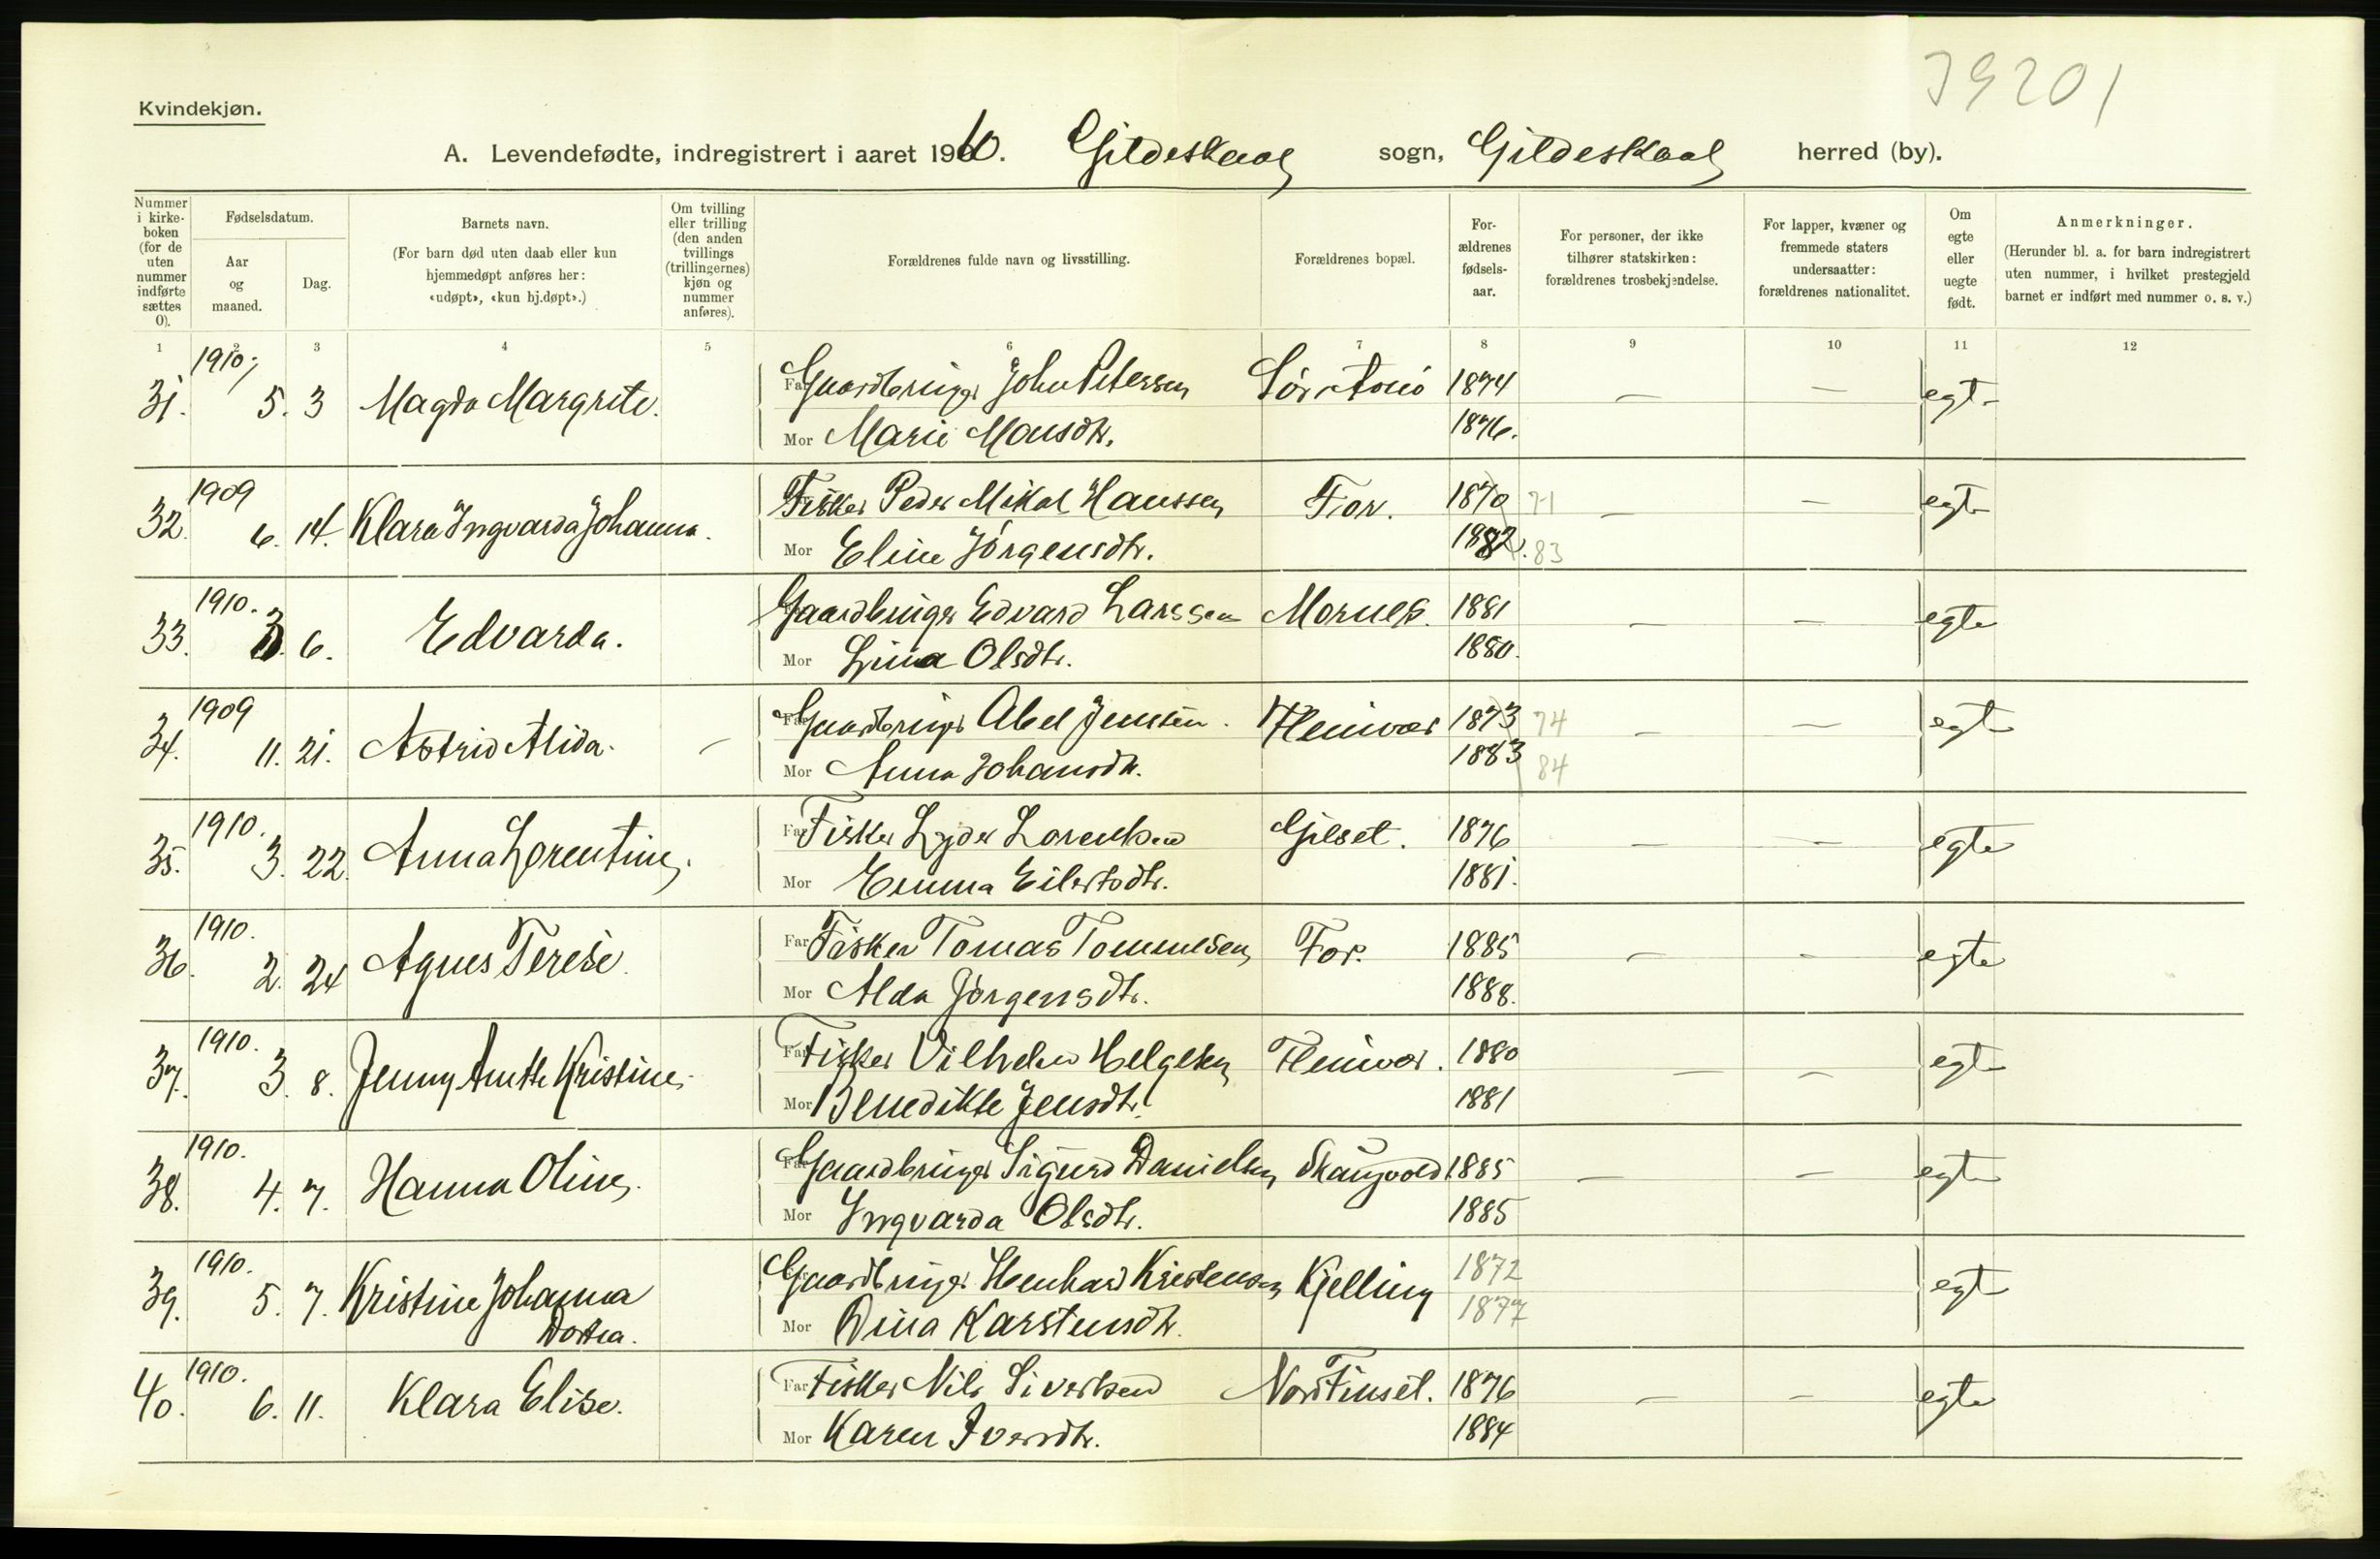 39201
Kvindekjøn.
A. Levendefødte, indregistrert i aaret 1910. Gildeskaal sogn, Gildeskaal herred (by).
Nummer i kirke-boken (for de uten nummer indførte sættes 0).
Fødselsdatum.
Aar og maaned.
Dag.
Barnets navn.
(For barn død uten daab eller kun hjemmedøpt anføres her: «udøpt», «kun hj.døpt».)
Om tvilling eller trilling (den anden tvillings (trillingernes) kjøn og nummer anføres).
Forældrenes fulde navn og livsstilling.
Forældrenes bopæl.
For-ældrenes fødsels-aar.
For personer, der ikke tilhører statskirken: forældrenes trosbekjendelse.
For lapper, kvæner og fremmede staters undersaatter: forældrenes nationalitet.
Om egte eller uegte født.
Anmerkninger.
(Herunder bl. a. for barn indregistrert uten nummer, i hvilket prestegjeld barnet er indført med nummer o. s. v.)
1 2 3 4 5 6 7 8 9 10 11 12
31. 1910. 5. 3 Magda Margrete. Far Gaardbruger John Petersen Sør Arnö 1874 — — egte
Mor Marie Monsdtr. 1876.
32. 1909 6. 14. Klara Ingvarda Johanna. Fisker Peder Mikal Hanssen For. 1870 71 — — egte
Mor Eline Jörgensdtr. 1882. 83
33. 1910. 3. 6. Edvarda. Gaardbruger Edvard Larssen Mornes. 1881 — — egte
Mor Lina Olsdtr. 1880.
34. 1909 11. 21. Astrid Alida. — Far Gaardbruger Abel Jenssen. Fleinvær 1873 74 — — egte
Mor Anna Johansdtr. 1883 84
35. 1910. 3. 22. Anna Lorentine. Far Fisker Lyder Lorentsen Gilset. 1876 — — egte
Mor Emma Eilertsdtr. 1881.
36. 1910. 2. 24 Agnes Terese. Far Fisker Tomas Tommesen For. 1885 — — egte
Mor Alda Jörgensdtr. 1888.
37. 1910. 3. 8. Jenny Anette Kristine. Far Fisker Vilhelm Helgesen Fleinvær. 1880 — — egte
Mor Benedikte Jensdtr. 1881
38. 1910. 4. 7. Hanna Oline. Far Gaardbruger Sigurd Danielsen Skaugvold 1885 — — egte
Mor Ingvarda Olsdtr. 1885
39. 1910. 5. 7. Kristine Johanna Gaardbruger Kristensen Kjelling 1872 egte
Dortea. Mor Dina Karstensdtr. 1877
40. 1910. 6. 11. Klara Elise. Far Fisker Nils Sivertsen Nord Finset. 1876 — — egte
Mor Karen Iversdtr. 1884